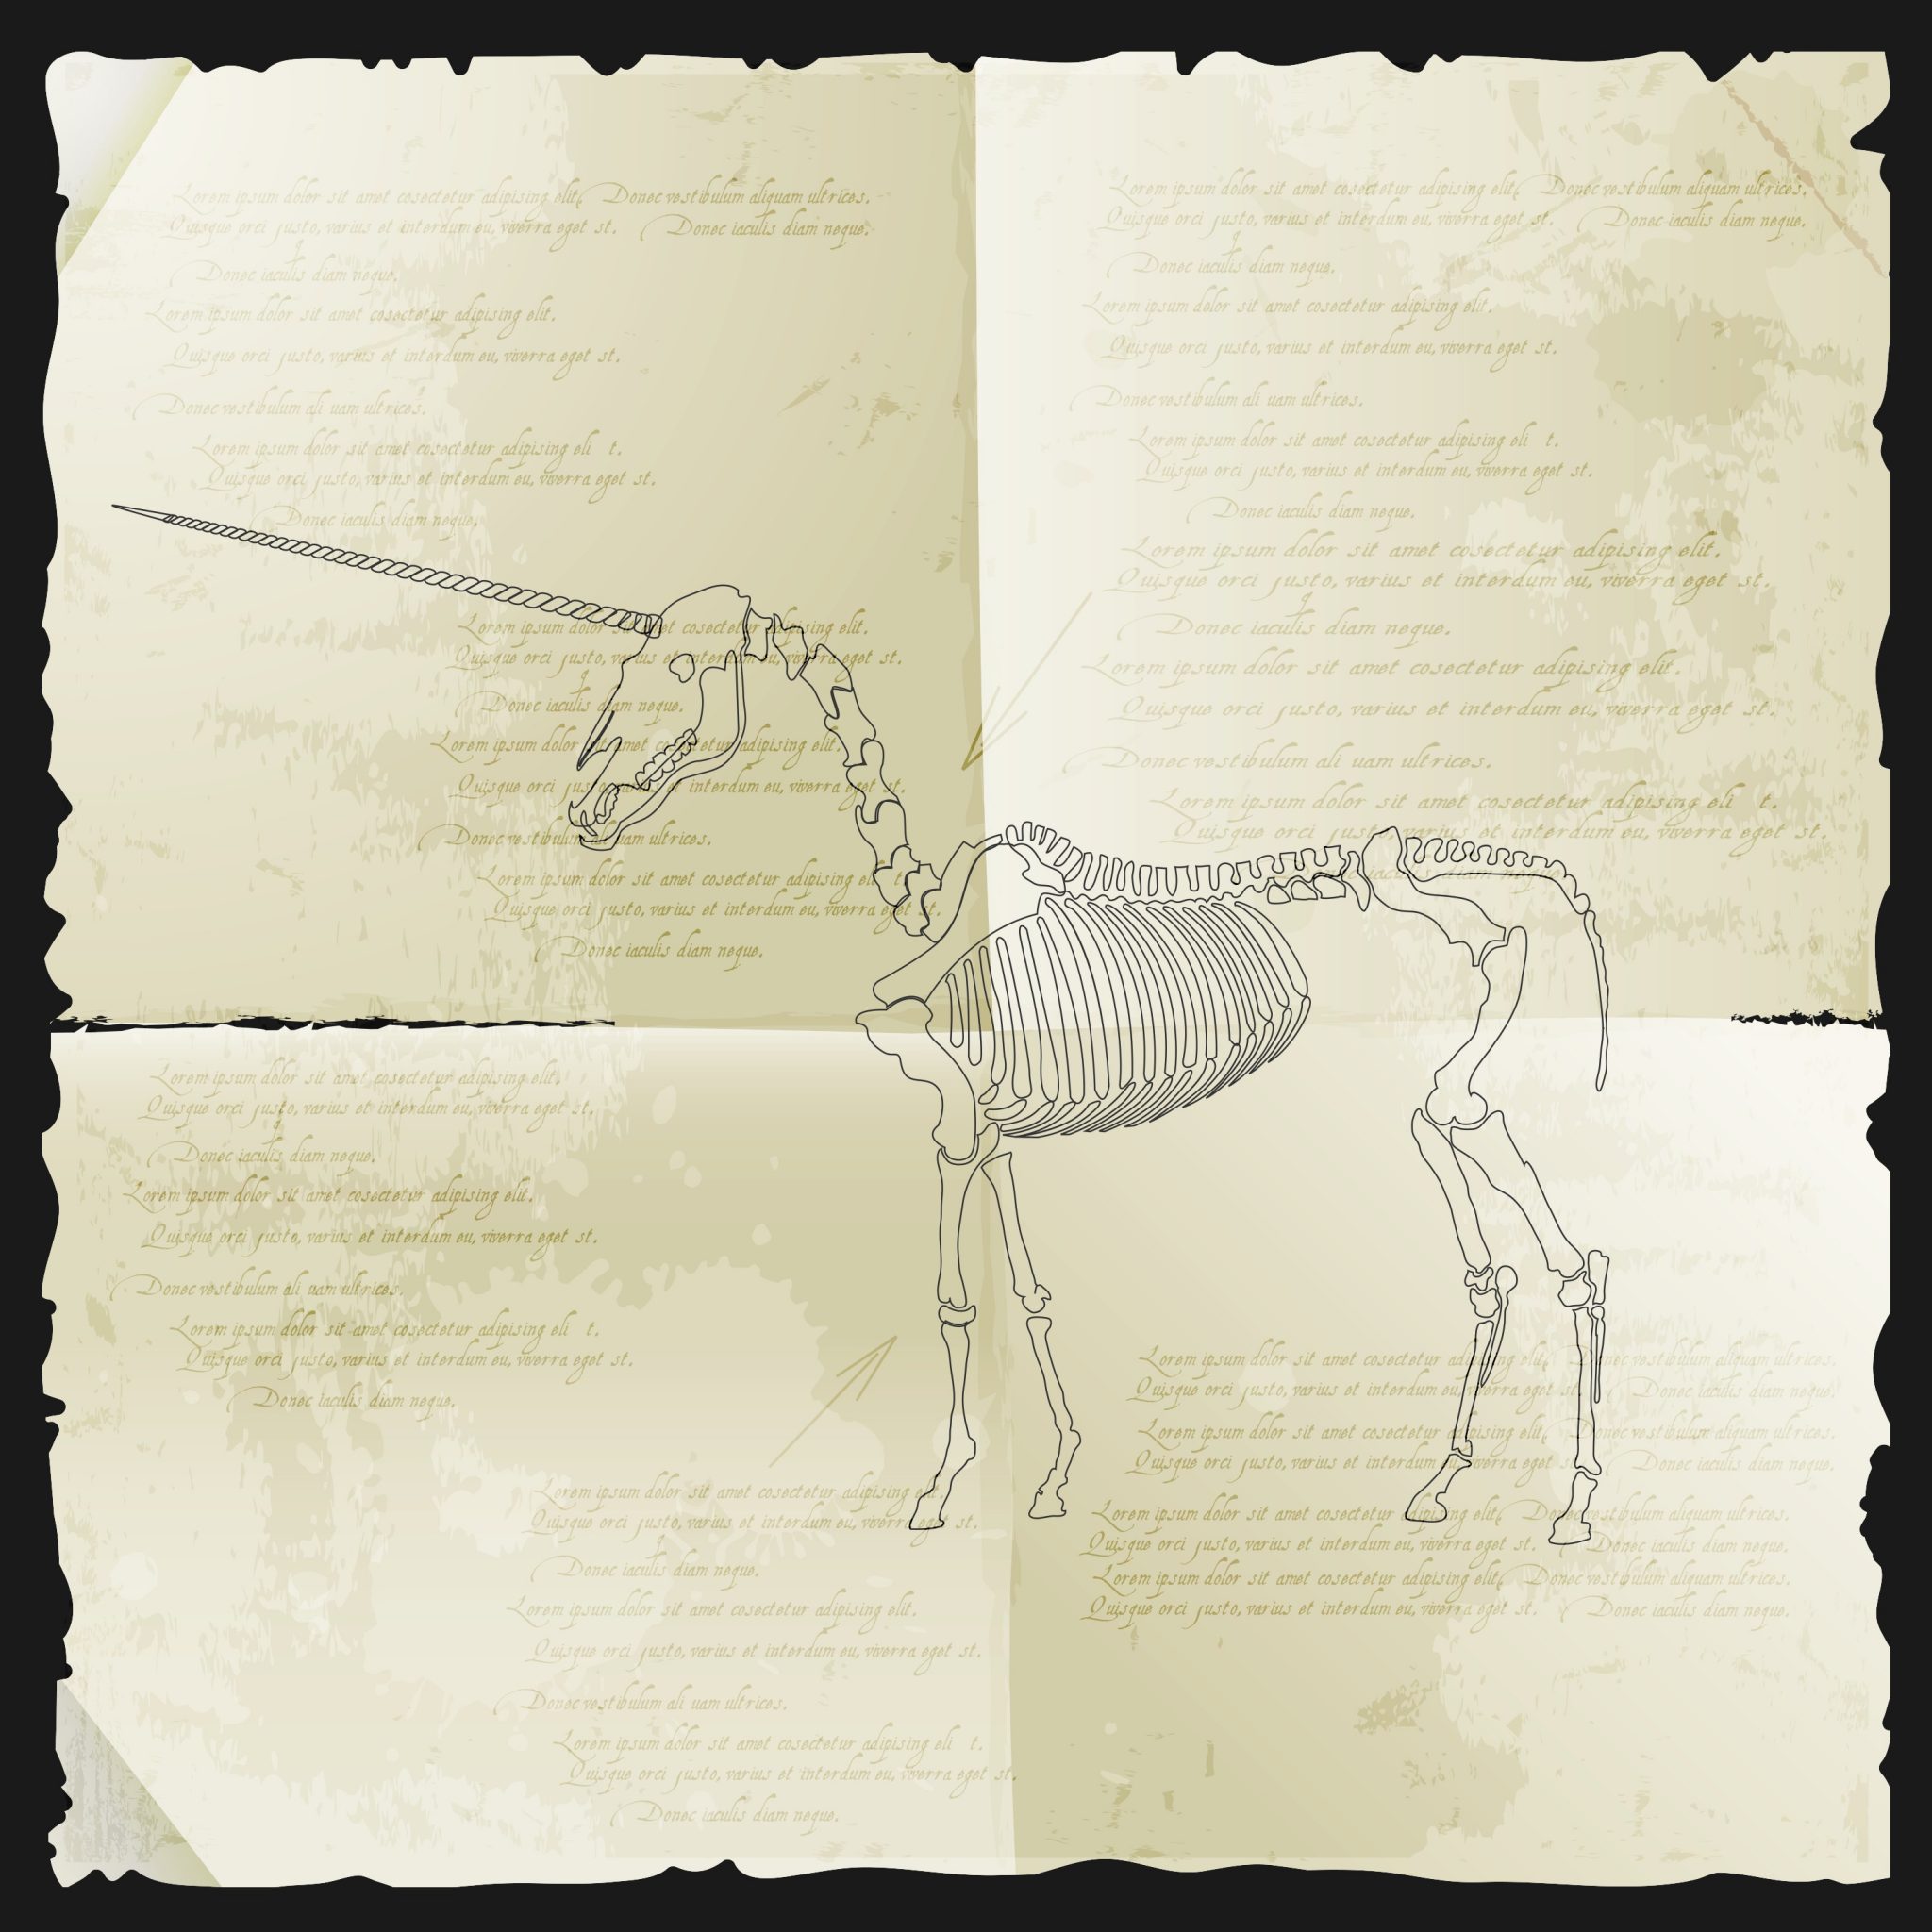 Lorem ipsum dolor sit amet cosectetur adipising elit, Donec vestibulum aliquam ultrices.
Quisque orci justo, varius et interdum eu, viverra eget st. Donec iaculis diam neque.
q
Donec iaculis diam neque.
Lorem ipsum dolor sit amet cosectetur adipising elit.
Quisque orci justo, varius et interdum eu, viverra eget st.
Donec vestibulum ali uam ultrices.
Lorem ipsum dolor sit amet cosectetur adipising eli t.
Quisque orci justo, varius et interdum eu, viverra eget st.
Donec iaculis diam neque.
Lorem ipsum dolor sit amet cosectetur adipising elit.
Quisque orci justo, varius et interdum eu, viverra eget st.
q
Donec iaculis diam neque.
Lorem ipsum dolor sit amet cosectetur adipising elit.
Quisque orci justo, varius et interdum eu, viverra eget st.
Donec vestibulum ali uam ultrices.
Lorem ipsum dolor sit amet cosectetur adipising eli t.
Quisque orci justo, varius et interdum eu, viverra eget st.
Donec iaculis diam neque.
Lorem ipsum dolor sit amet cosectetur adipising elit, Donec vestibulum aliquam ultrices.
Quisque orci justo, varius et interdum eu, viverra eget st. Donec iaculis diam neque.
q
Donec iaculis diam neque.
Lorem ipsum dolor sit amet cosectetur adipising elit.
Quisque orci justo, varius et interdum eu, viverra eget st.
Donec vestibulum ali uam ultrices.
Lorem ipsum dolor sit amet cosectetur adipising eli t.
Quisque orci justo, varius et interdum eu, viverra eget st.
Donec iaculis diam neque.
Lorem ipsum dolor sit amet cosectetur adipising elit.
Quisque orci justo, varius et interdum eu, viverra eget st.
q
Donec iaculis diam neque.
Lorem ipsum dolor sit amet cosectetur adipising elit.
Quisque orci justo, varius et interdum eu, viverra eget st.
Donec vestibulum ali uam ultrices.
Lorem ipsum dolor sit amet cosectetur adipising eli t.
Quisque orci justo, varius et interdum eu, viverra eget st.
Donec iaculis diam neque.
Lorem ipsum dolor sit amet cosectetur adipising elit.
Quisque orci justo, varius et interdum eu, viverra eget st.
q
Donec iaculis diam neque.
Lorem ipsum dolor sit amet cosectetur adipising elit.
Quisque orci justo, varius et interdum eu, viverra eget st.
Donec vestibulum ali uam ultrices.
Lorem ipsum dolor sit amet cosectetur adipising eli t.
Quisque orci justo, varius et interdum eu, viverra eget st.
Donec iaculis diam neque.
Lorem ipsum dolor sit amet cosectetur adipising elit.
Quisque orci justo, varius et interdum eu, viverra eget st.
q
Donec iaculis diam neque.
Lorem ipsum dolor sit amet cosectetur adipising elit.
Quisque orci justo, varius et interdum eu, viverra eget st.
Donec vestibulum ali uam ultrices.
Lorem ipsum dolor sit amet cosectetur adipising eli t.
Quisque orci justo, varius et interdum eu, viverra eget st.
Donec iaculis diam neque.
Lorem ipsum dolor sit amet cosectetur adipising elit, Donec vestibulum aliquam ultrices.
Quisque orci justo, varius et interdum eu, viverra eget st. Donec iaculis diam neque.
Lorem ipsum dolor sit amet cosectetur adipising elit, Donec vestibulum aliquam ultrices.
Quisque orci justo, varius et interdum eu, viverra eget st. Donec iaculis diam neque.
Lorem ipsum dolor sit amet cosectetur adipising elit, Donec vestibulum aliquam ultrices.
Quisque orci justo, varius et interdum eu, viverra eget st. Donec iaculis diam neque.
Lorem ipsum dolor sit amet cosectetur adipising elit, Donec vestibulum aliquam ultrices.
Quisque orci justo, varius et interdum eu, viverra eget st. Donec iaculis diam neque.